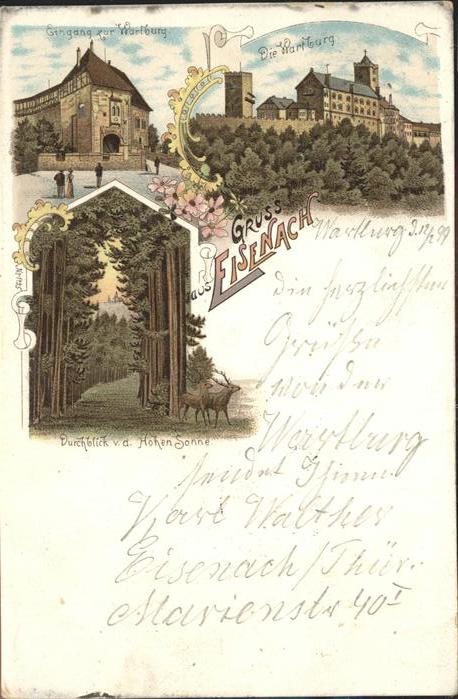 Eingang zur Wartburg.
Die Wartburg.
Gruss
aus Eisenach
Durchblick v. d. Hohen Sonne.
Wartburg d.
die herzlichsten
Grüße
von der
Wartburg
sendet Ihnen
Karl Walther
Eisenach/Thür.
Marienstr 40 I